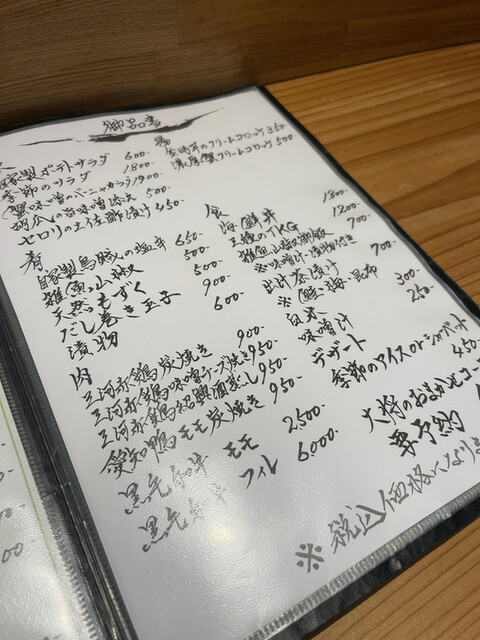 御品書
自家製ポテトサラダ 600-
季節のサラダ 1800-
蟹味噌のバーニャカウダ 1900-
胡瓜の旨味噌添え 500-
セロリの土佐酢漬け 450-
肴
自家製烏賊の塩辛 650-
雑魚山椒 500-
天然もずく 500-
だし巻き玉子 900-
漬物 600-
肉
三河赤鶏炭焼き 900-
三河赤鶏味噌チーズ焼き 950-
三河赤鶏紹興酒蒸し 950-
愛知鴨モモ炭焼き 950-
黒毛和牛 モモ 2,500-
黒毛和牛 フィレ 6,000-
揚
クリームコロッケ 350-
濃厚蟹クリームコロッケ 500-
食
海鮮丼 1800-
三種のTKG 1200-
雑魚山椒御飯 700-
※味噌汁・漬物付き
出汁茶漬け 700-
※(鮭・梅・昆布)
白米 300-
味噌汁 250-
デザート
季節のアイスorシャーベット 450-
大将のおまかせコー
要予約
※税込価格になりま